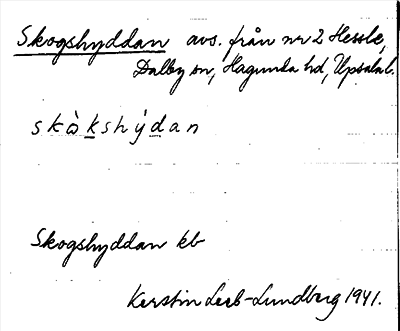 Skogshyddan avs. från nr 2 Hessle,
Dalby sn, Hagunda hd, Upsala l.
skὰkshýdan
Skogshyddan kb
Kerstin Leeb-Lundberg 1941.